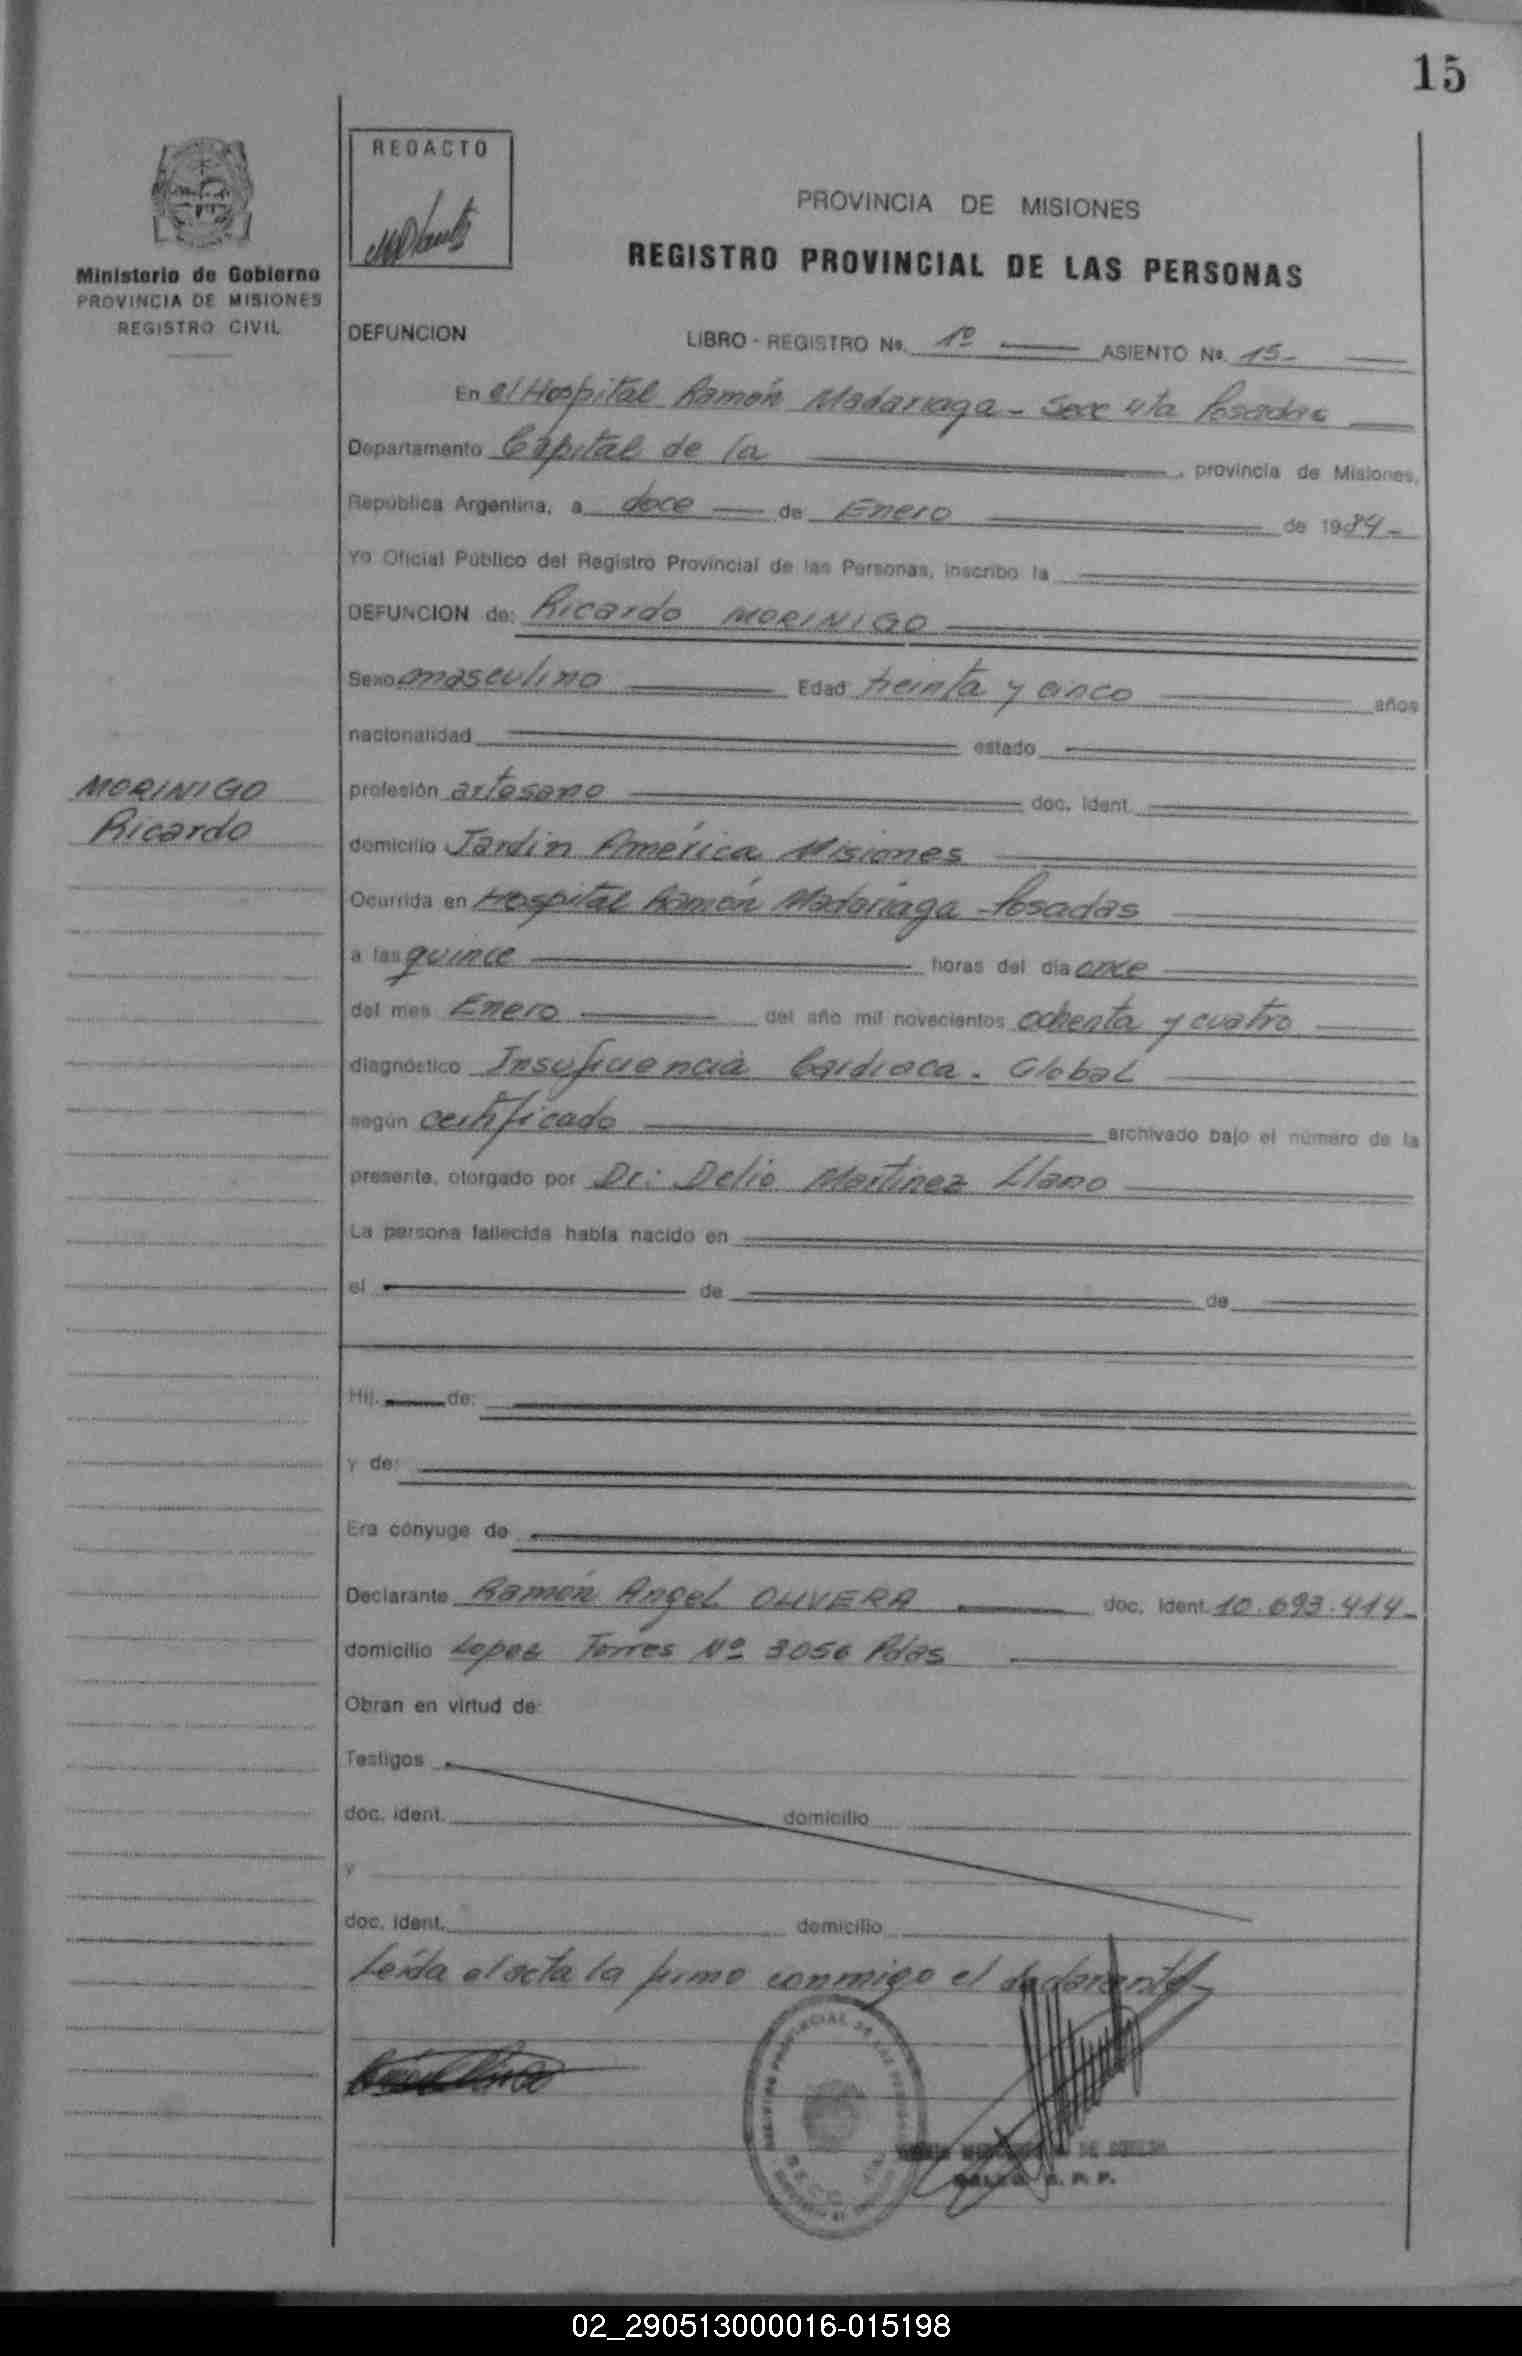 15
REDACTO
PROVINCIA DE MISIONES
REGISTRO PROVINCIAL DE LAS PERSONAS
Ministerio de Gobierno
PROVINCIA DE MISIONES
REGISTRO CIVIL
DEFUNCION LIBRO - REGISTRO No. 1º ASIENTO No. 15-
En el Hospital Ramón Madariaga - Secc 4ta Posadas
Departamento Capital de la , provincia de Misiones,
República Argentina, a doce de Enero de 1984-
Yo Oficial Público del Registro Provincial de las Personas, inscribo la
DEFUNCION de: Ricardo MORINIGO
Sexo masculino Edad treinta y cinco años
nacionalidad estado
MORINIGO
Ricardo
profesión artesano doc. ident.
domicilio Jardin América Misiones
Ocurrida en Hospital Ramón Madariaga - Posadas
a las quince horas del día once
del mes Enero del año mil novecientos ochenta y cuatro
diagnóstico Insuficiencia Cardiaca. Global
según certificado archivado bajo el número de la
presente, otorgado por Dr: Delio Martinez Llano
La persona fallecida había nacido en
el de de
Hij. de:
y de:
Era cónyuge de
Declarante Ramón Angel OLIVERA doc. ident. 10.693.414-
domicilio Lopez Torres Nº 3056 Pdas
Obran en virtud de:
Testigos
doc. ident. domicilio
y
doc. ident. domicilio
Leída el acta la firmo conmigo el declarante-
02_290513000016-015198